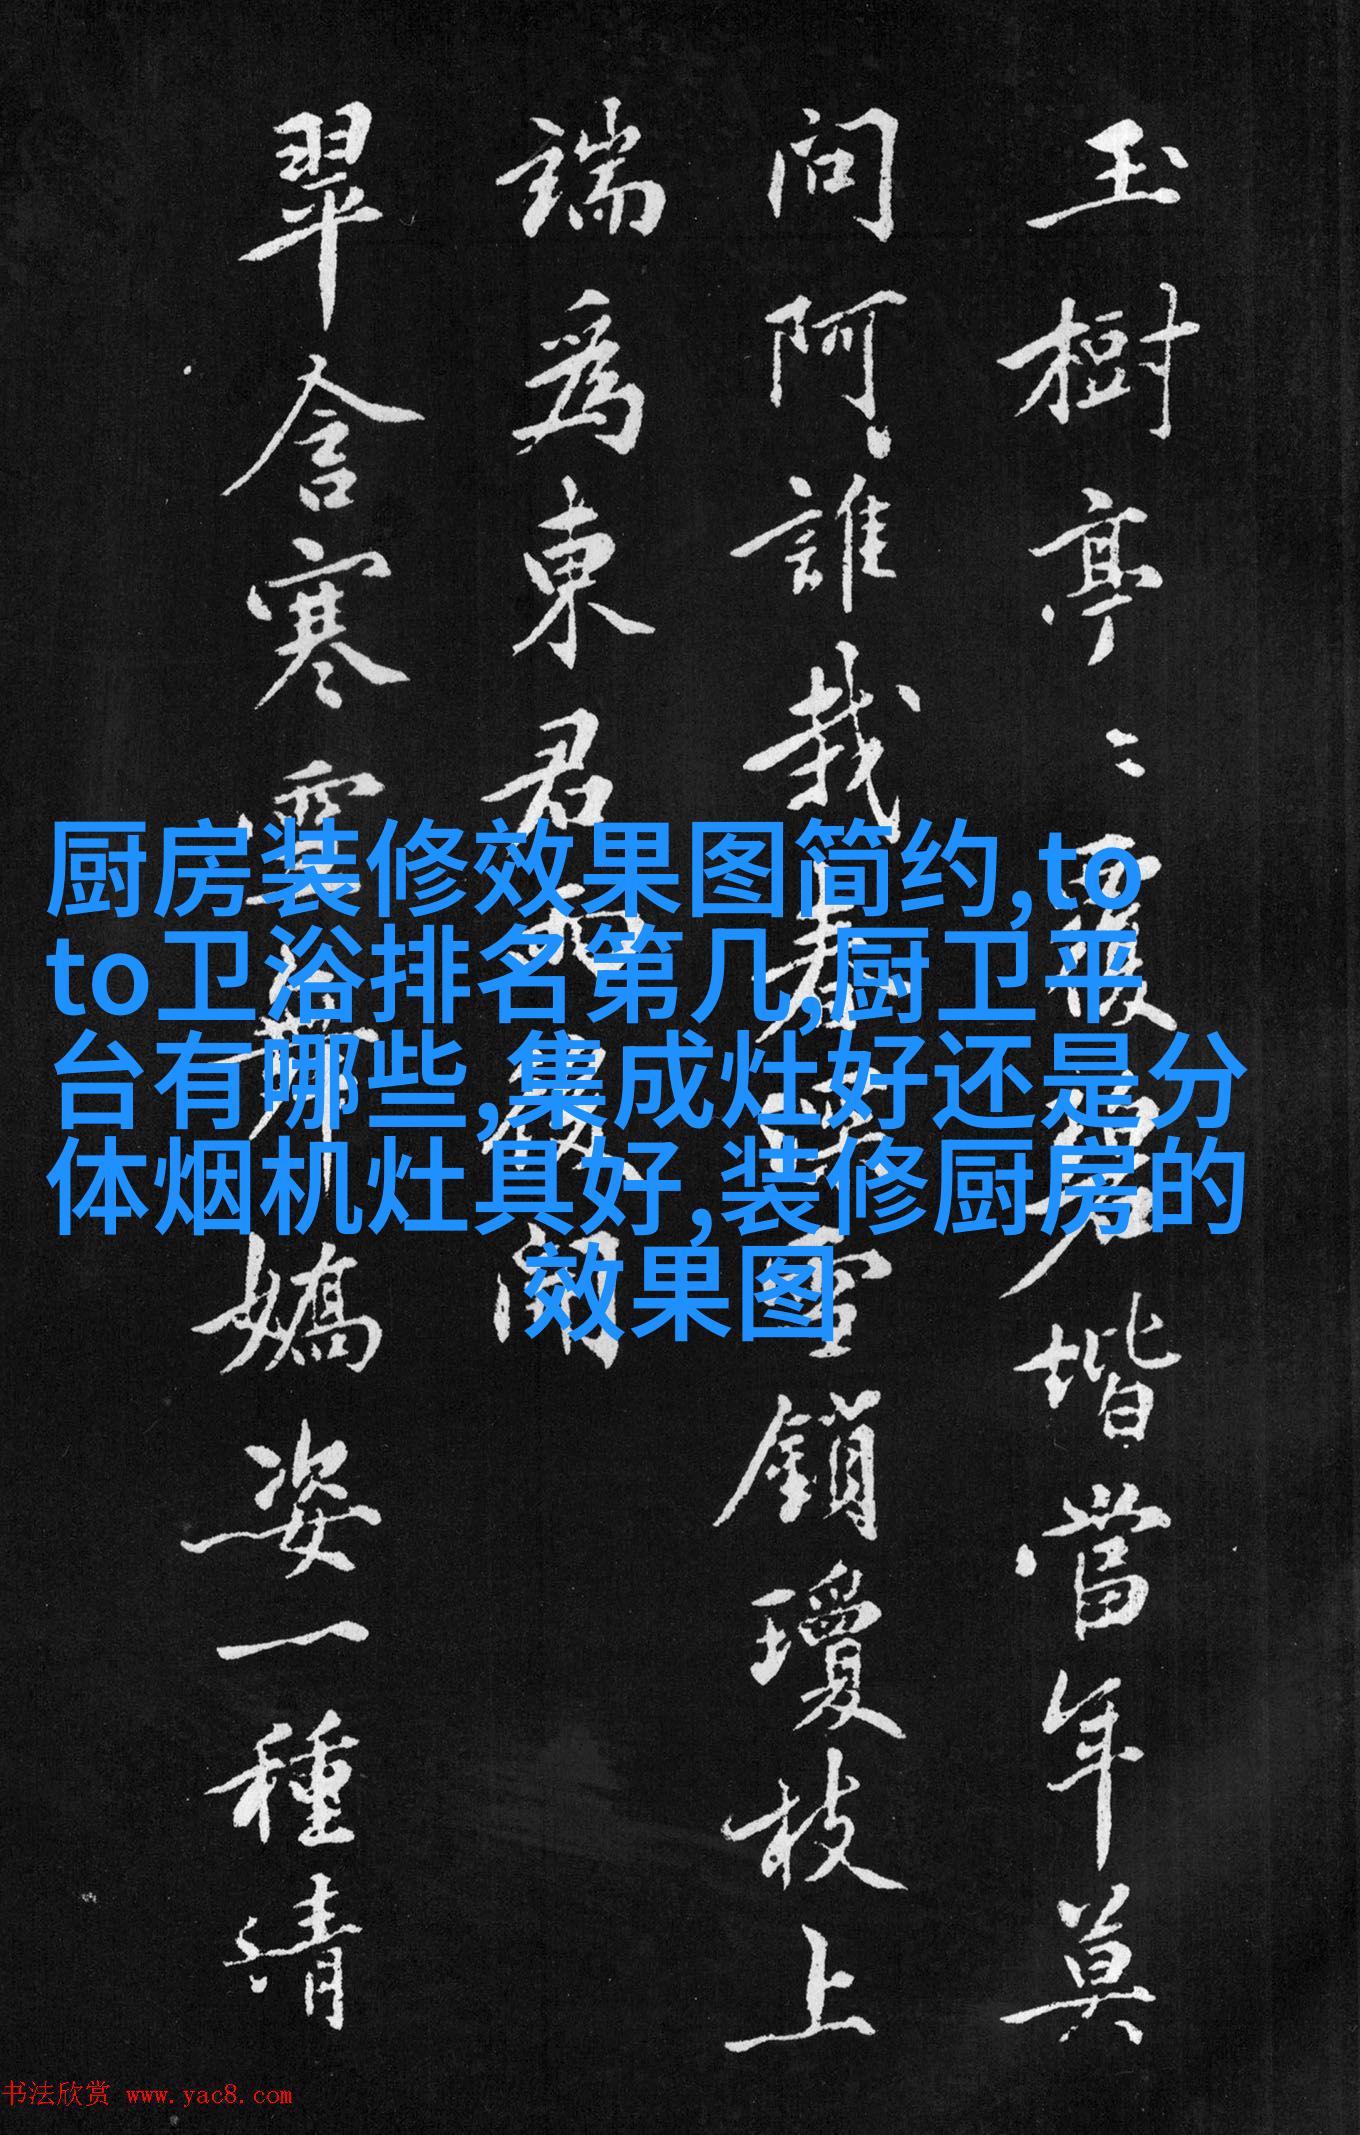 玉樹亭〻覆碧堦當年莫
問阿誰栽春雪鎖瓊枝上
端為東君開
翠含寒嬌姿一種清
厨房装修效果图简约,to
to卫浴排名第几,厨卫平
台有哪些,集成灶好还是分
体烟机灶具好,装修厨房的
效果图
书法欣赏 www.yac8.com